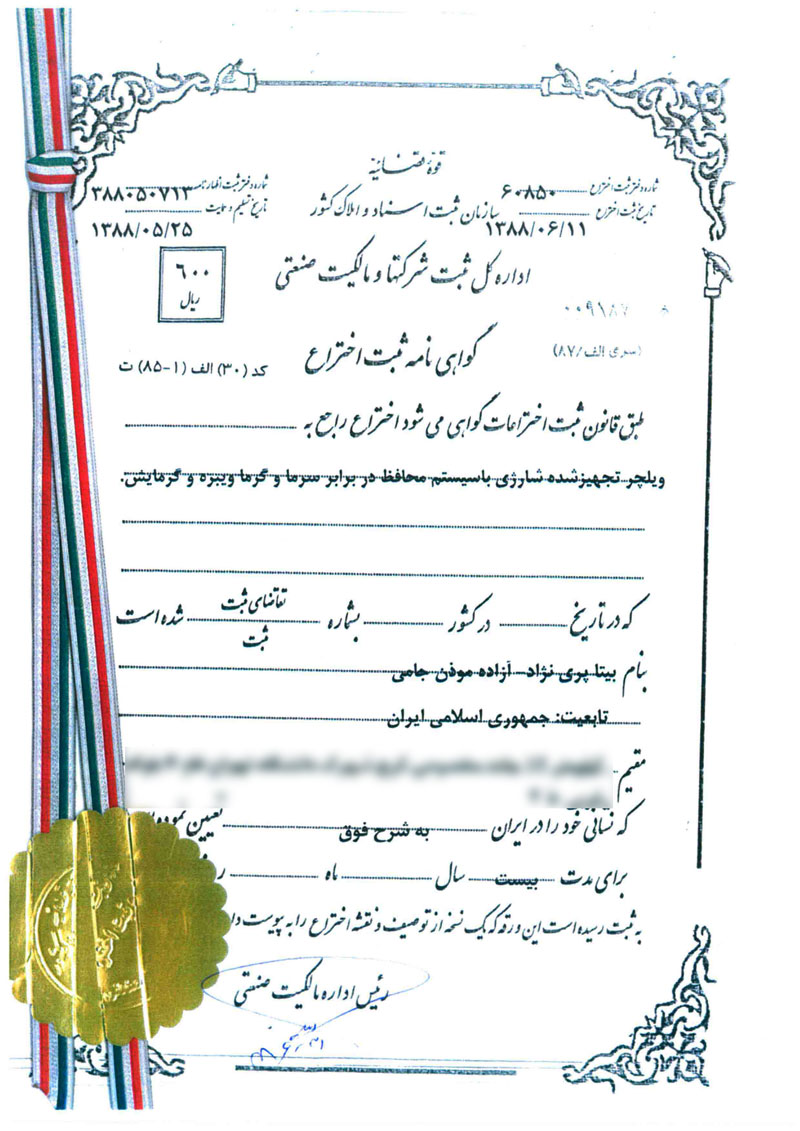 قوهٔ قضائیه
شماره دفتر ثبت اختراع ۶۰۸۵۰
شماره دفتر ثبت اظهارنامه ۳۸۸۰۵۰۷۱۳
سازمان ثبت اسناد و املاک کشور
تاریخ ثبت اختراع ۱۳۸۸/۰۶/۱۱
تاریخ تسلیم و حمایت ۱۳۸۸/۰۵/۲۵
اداره کل ثبت شرکتها و مالکیت صنعتی
۶۰۰
ریال
۰۰۹۱۸۷
(سری الف/۸۷)
گواهی نامه ثبت اختراع
کد (۳۰) الف (۱-۸۵) ت
طبق قانون ثبت اختراعات گواهی می شود اختراع راجع به
ویلچر تجهیزشده شارژی باسیستم محافظ در برابر سرما و گرما ویبره و گرمایش.
که در تاریخ در کشور بشماره تقاضای ثبت شده است
ثبت
بنام بیتا پری نژاد- آزاده موذن جامی
تابعیت: جمهوری اسلامی ایران
مقیم
که نشانی خود را در ایران به شرح فوق تعیین نموده
برای مدت بیست سال ماه ر
به ثبت رسیده است این ورقه که یک نسخه از توصیف و نقشه اختراع را به پیوست دا
رئیس اداره مالکیت صنعتی